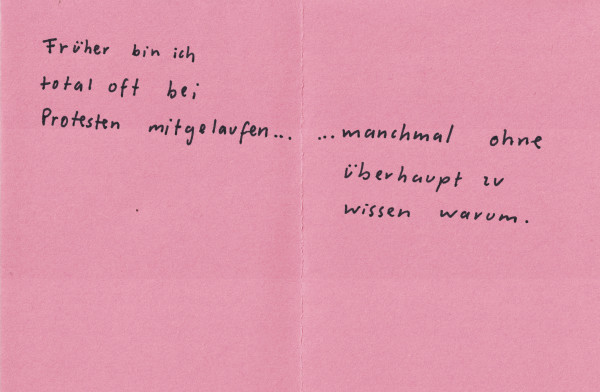 Früher bin ich
total oft bei
Protesten mitgelaufen...
...manchmal ohne
überhaupt zu
wissen warum.